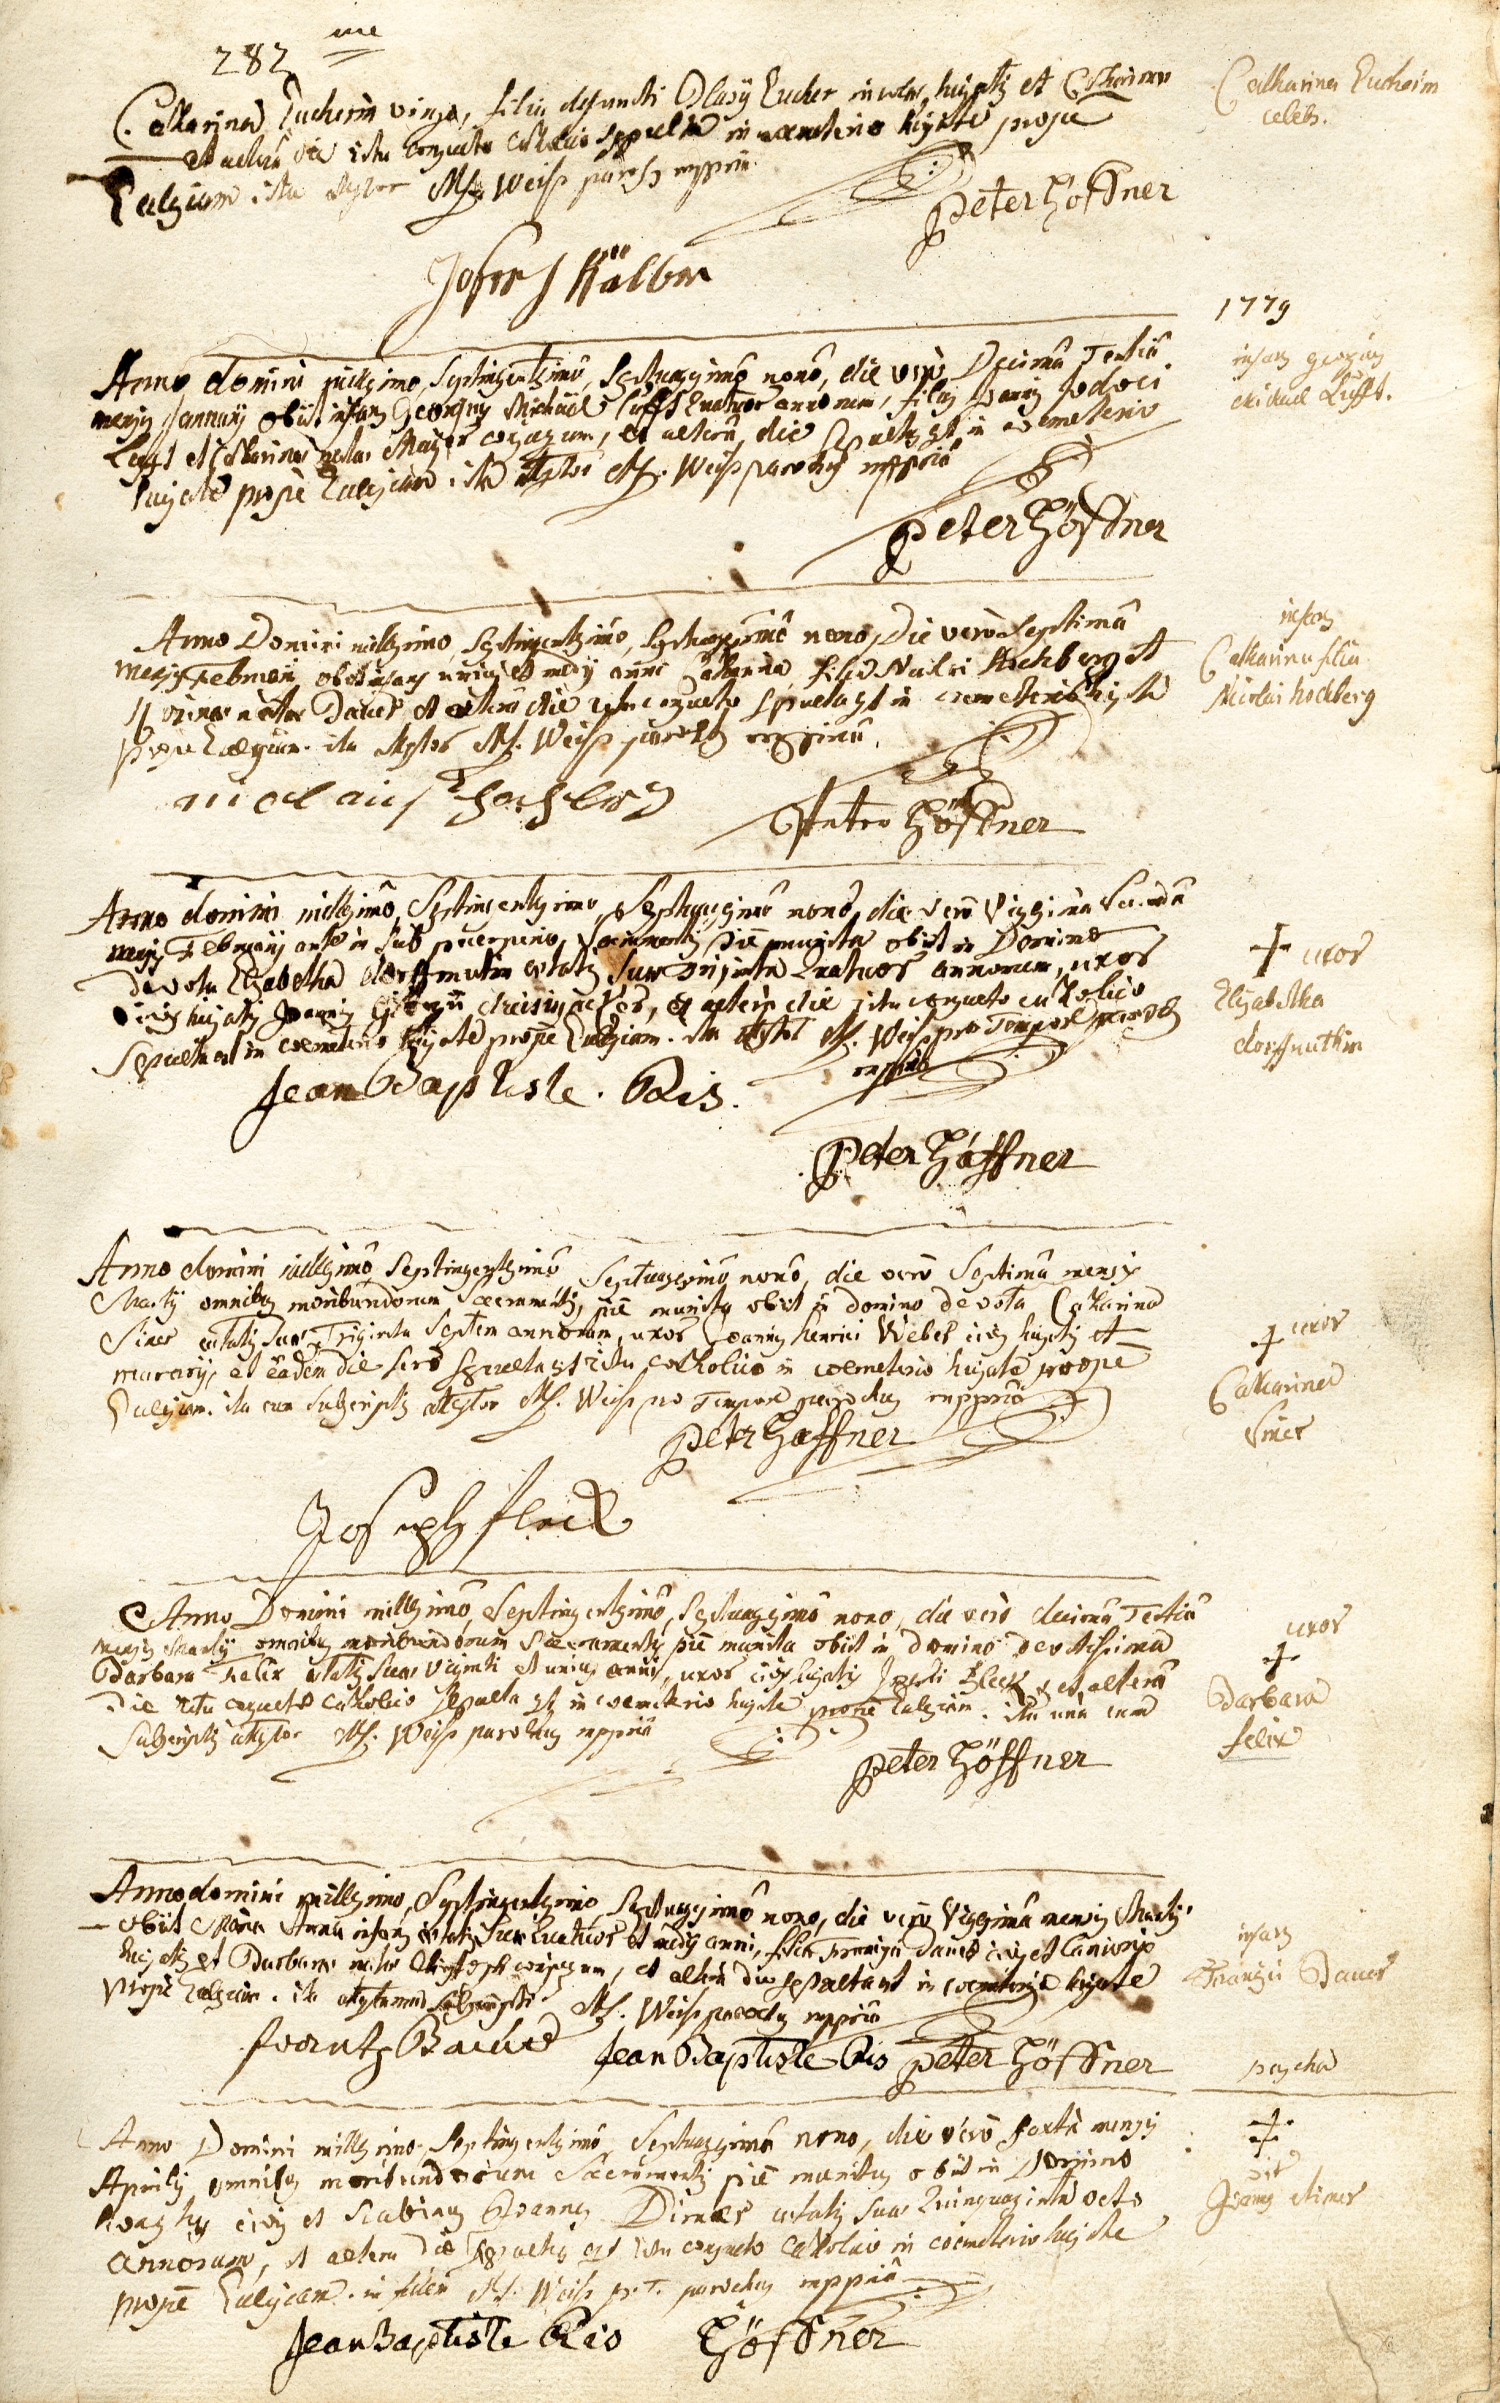 282 me
Catharina Eucherin virgo, filia defuncti Blasij Eucher incolae hujatis et Catharinae
et altera die ritu consueto Catholico sepulta in coemeterio hujate prope
Ecclesiam. ita attestor M. Weiss parochus mppria
Catharina Eucherin
celebs.
Peter Höffner
Joseph Kälber
1779
Anno domini millesimo, Septingentesimo, Septuagesimo nono, die vero Decima Tertia
mensis Januarij obiit infans Georgius Michaël Lufft quatuor annorum, filius Joannis Jodoci
Lufft et Catharinae natae Mayer conjugum, et altera die sepultus est in coemeterio
hujate prope Ecclesiam. ita attestor M. Weiss parochus mppria
infans georgius
michael Lufft.
Peter Höffner
Anno Domini millesimo, Septingentesimo, Septuagesimo nono, Die vero Septima
mensis Februarij obiit infans unius et medij anni Catharina filia Nicolai Hochberg et
natae Bauer et altera die ritu consueto sepulta est in coemeterio hujate
prope Ecclesiam. ita attestor M. Weiss parochus mppria
infans
Catharina filia
Nicolai hochberg
nicolaus hochberg
Peter Höffner
Anno domini millesimo, Septingentesimo, Septuagesimo nono, die vero Vigesima Secunda
mensis Februarij ante in suo puerperio, Sacramentis pie munita obiit in Domino
Devota Elisabetha dorffmutin aetatis suae triginta quatuor annorum, uxor
civis hujatis Joannis, et altera die ritu consueto catholico
Sepulta est in coemeterio hujate prope Ecclesiam. ita attestor M. Weiss pro Tempore parochus
mppria
uxor
Elisabetha
dorffmuthin
Jean Baptiste. Ris.
Peter Höffner
Anno domini millesimo, Septingentesimo, Septuagesimo nono, die vero Septima mensis
Martij omnibus moribundorum Sacramentis, pie munita obiit in domino devota Catharina
Siner aetatis suae Triginta Septem annorum, uxor Joannis Henrici Weber civis hujatis et
murarij, et eadem die sero sepulta est ritu catholico in coemeterio hujate prope
Ecclesiam. ita cum subscriptis attestor M. Weiss pro Tempore parochus mppria
uxor
Catharina
Siner
Peter Höffner
Joseph fleck
Anno Domini millesimo, Septingentesimo, Septuagesimo nono, die vero decima Tertia
mensis Martij omnibus moribundorum Sacramentis pie munita obiit in domino Devotissima
Barbara Felix aetatis suae viginti et unius anni, uxor civis hujatis Josephi Fleck, et altera
Die ritu consueto catholico sepulta est in coemeterio hujate prope Ecclesiam. ita una cum
Subscriptis attestor M. Weiss parochus mppria
uxor
Barbara
felix
Peter Höffner
Anno domini millesimo, Septingentesimo, Septuagesimo nono, die vero Vigesima mensis Martij
obiit Maria Anna infans aetatis suae quatuor et medij anni, filia Francisci Bauer civis et
hujatis et Barbarae natae Christoph conjugum, et altera die sepulta est in coemeterio hujate
prope Ecclesiam. ita attestamur subscripti M. Weiss parochus mppria
infans
Francisci Bauer
frantz Bauer Jean Baptiste Ris Peter Höffner
pascha
Anno Domini millesimo Septingentesimo, Septuagesimo nono, die vero sexta mensis
Aprilis omnibus moribundorum Sacramentis pie munitus obiit in Domino
honestus civis et Scabinus Joannes Dimer aetatis suae quinquaginta octo
annorum, et altera die sepultus est ritu consueto Catholico in coemeterio hujate
prope Ecclesiam. in fidem M. Weiss p. T. parochus mppria
vir
Joannes dimer
Jean Baptiste Ris Höffner